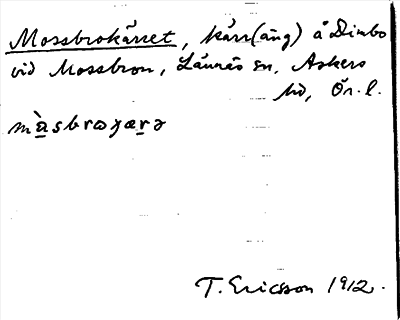 Mossbrokärret, kärr(äng) å Dimbo
vid Mossbron, Lännäs sn, Askers
hd, Ör. l.
màsbroɣærə
T. Ericsson 1912.